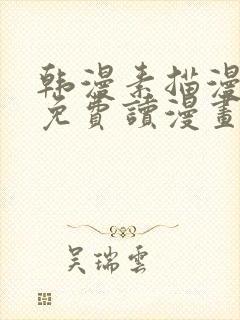 韩漫素描漫
免費讀漫畫
吴瑞雲